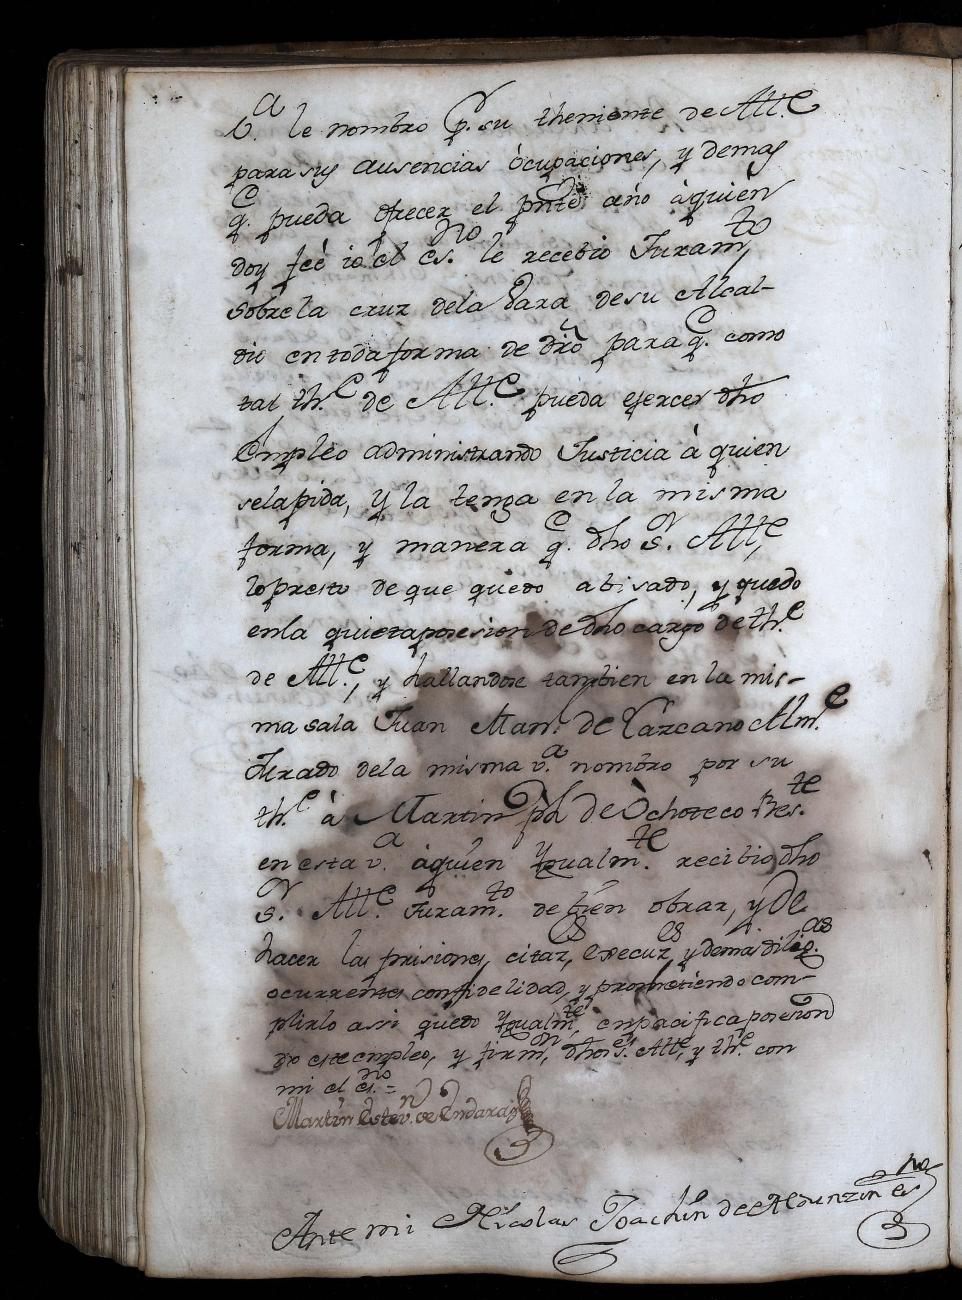 v.ª le nombro p.r su theniente de Alł.e
para sus ausencias òcupaciones, y demas
q.e pueda ofrecer el pñte año àquien
doy feè io el es.no le recebio Juram.to
sobre la cruz dela Vara desu Alcal-
dio en toda forma de dr̃o para q.e como
tal th.e de Alł.e pueda ejercer dho
Empleo administrando Justicia à quien
selapida, y la tenga en la misma
forma, y manera q.e dho S.r Alł.e
lo presto de que quedo abisado, y quedo
enla quieta posesion de dho cargo de th.e
de Alł.e, y hallandose tambien en la mis-
ma sala Juan Marn. de Lazcano Alm.e
Jurado dela misma v.ª nombro por su
th.e à Martin Ph. de Òchoteco Res.te
en esta v.ª àquien Yqualm.te recibio dho
S.r Alł.e Juram.to de bien obrar, y de
hacer las prisiones, citar, Execuz.es y demas dilig.as
ocurrentes con fidelidad, y prometiendo com-
plirlo asi quedo Yqualm.te en pacifica posesion
de este empleo, y firm.on dhos s.es Alł.e y th.e con
mi el es.no =
Martin Estev.n de Endara
Ante mi Nicolas Joachin de Aldunzin es.no